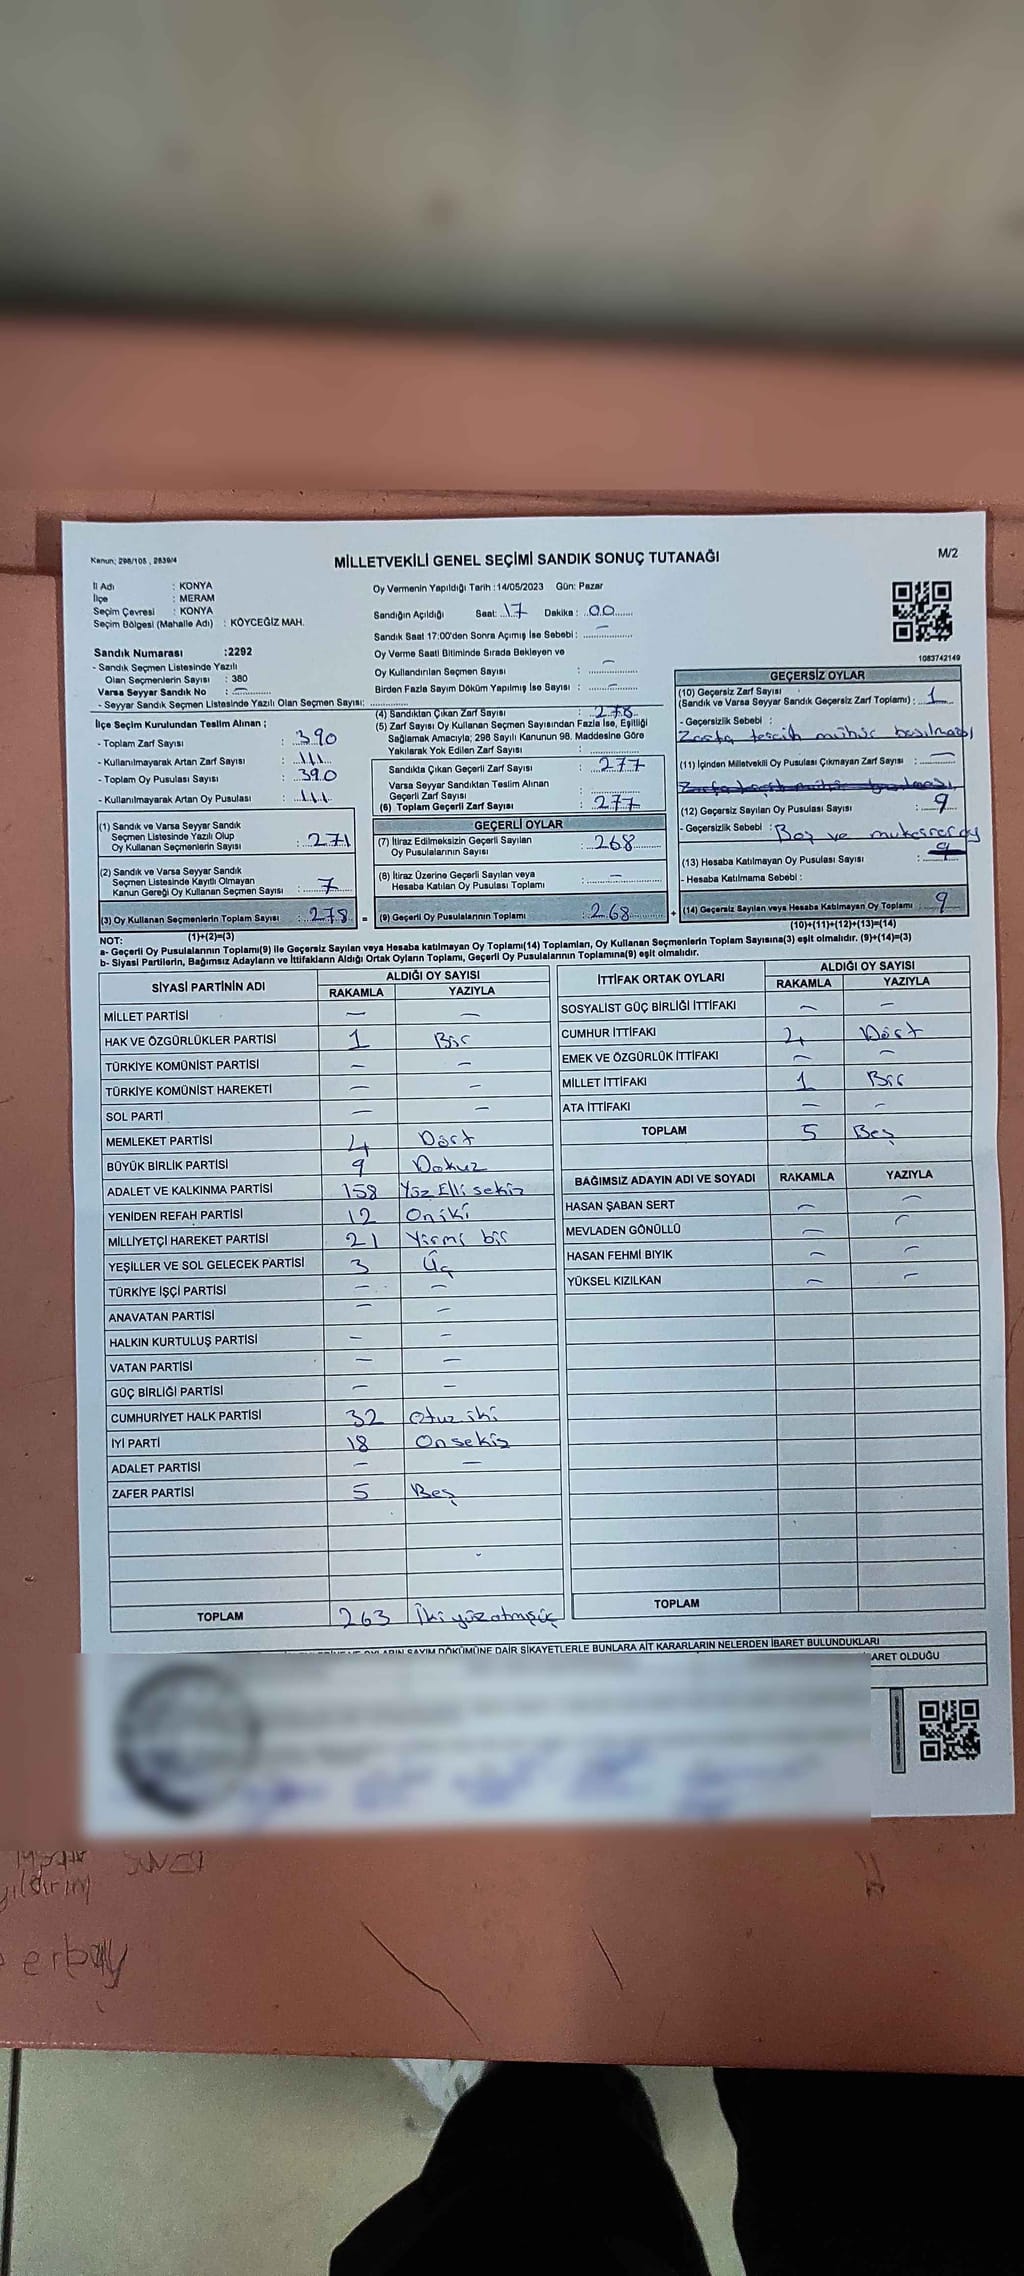 Kanun; 298/105 , 2839/4
MİLLETVEKİLİ GENEL SEÇİMİ SANDIK SONUÇ TUTANAĞI
M/2
İl Adı : KONYA
İlçe : MERAM
Seçim Çevresi : KONYA
Seçim Bölgesi (Mahalle Adı) : KÖYCEĞİZ MAH.
Sandık Numarası :2292
- Sandık Seçmen Listesinde Yazılı
Olan Seçmenlerin Sayısı : 380
Varsa Seyyar Sandık No : —
- Seyyar Sandık Seçmen Listesinde Yazılı Olan Seçmen Sayısı:
Oy Vermenin Yapıldığı Tarih :14/05/2023 Gün: Pazar
Sandığın Açıldığı Saat: 17 Dakika : 00
Sandık Saat 17:00'den Sonra Açımış İse Sebebi : —
Oy Verme Saati Bitiminde Sırada Bekleyen ve
Oy Kullandırılan Seçmen Sayısı : —
Birden Fazla Sayım Döküm Yapılmış İse Sayısı : —
1083742149
İlçe Seçim Kurulundan Teslim Alınan ;
- Toplam Zarf Sayısı : 390
- Kullanılmayarak Artan Zarf Sayısı : 111
- Toplam Oy Pusulası Sayısı : 390
- Kullanılmayarak Artan Oy Pusulası : 111
(1) Sandık ve Varsa Seyyar Sandık
Seçmen Listesinde Yazılı Olup
Oy Kullanan Seçmenlerin Sayısı : 271
(2) Sandık ve Varsa Seyyar Sandık
Seçmen Listesinde Kayıtlı Olmayan
Kanun Gereği Oy Kullanan Seçmen Sayısı : 7
(3) Oy Kullanan Seçmenlerin Toplam Sayısı : 278 =
(1)+(2)=(3)
(4) Sandıktan Çıkan Zarf Sayısı : 278
(5) Zarf Sayısı Oy Kullanan Seçmen Sayısından Fazla İse, Eşitliği
Sağlamak Amacıyla; 298 Sayılı Kanunun 98. Maddesine Göre
Yakılarak Yok Edilen Zarf Sayısı :
Sandıkta Çıkan Geçerli Zarf Sayısı : 277
Varsa Seyyar Sandıktan Teslim Alınan
Geçerli Zarf Sayısı :
(6) Toplam Geçerli Zarf Sayısı : 277
GEÇERLİ OYLAR
(7) İtiraz Edilmeksizin Geçerli Sayılan
Oy Pusulalarının Sayısı : 268
(8) İtiraz Üzerine Geçerli Sayılan veya
Hesaba Katılan Oy Pusulası Toplamı : —
(9) Geçerli Oy Pusulalarının Toplamı : 268 +
GEÇERSİZ OYLAR
(10) Geçersiz Zarf Sayısı
(Sandık ve Varsa Seyyar Sandık Geçersiz Zarf Toplamı) : 1
- Geçersizlik Sebebi :
Zarfa tercih mühür basılması
(11) İçinden Milletvekili Oy Pusulası Çıkmayan Zarf Sayısı : —
(12) Geçersiz Sayılan Oy Pusulası Sayısı : 9
- Geçersizlik Sebebi : Boş ve mukerrer oy
(13) Hesaba Katılmayan Oy Pusulası Sayısı :
- Hesaba Katılmama Sebebi :
(14) Geçersiz Sayılan veya Hesaba Katılmayan Oy Toplamı : 9
(10)+(11)+(12)+(13)=(14)
NOT:
a- Geçerli Oy Pusulalarının Toplamı(9) ile Geçersiz Sayılan veya Hesaba katılmayan Oy Toplamı(14) Toplamları, Oy Kullanan Seçmenlerin Toplam Sayısına(3) eşit olmalıdır. (9)+(14)=(3)
b- Siyasi Partilerin, Bağımsız Adayların ve İttifakların Aldığı Ortak Oyların Toplamı, Geçerli Oy Pusulalarının Toplamına(9) eşit olmalıdır.
SİYASİ PARTİNİN ADI ALDIĞI OY SAYISI
RAKAMLA YAZIYLA
MİLLET PARTİSİ — —
HAK VE ÖZGÜRLÜKLER PARTİSİ 1 Bir
TÜRKİYE KOMÜNİST PARTİSİ — —
TÜRKİYE KOMÜNİST HAREKETİ — —
SOL PARTİ — —
MEMLEKET PARTİSİ 4 Dört
BÜYÜK BİRLİK PARTİSİ 9 Dokuz
ADALET VE KALKINMA PARTİSİ 158 Yüz Elli sekiz
YENİDEN REFAH PARTİSİ 12 Oniki
MİLLİYETÇİ HAREKET PARTİSİ 21 Yirmi bir
YEŞİLLER VE SOL GELECEK PARTİSİ 3 Üç
TÜRKİYE İŞÇİ PARTİSİ — —
ANAVATAN PARTİSİ — —
HALKIN KURTULUŞ PARTİSİ — —
VATAN PARTİSİ — —
GÜÇ BİRLİĞİ PARTİSİ — —
CUMHURİYET HALK PARTİSİ 32 Otuz iki
İYİ PARTİ 18 Onsekiz
ADALET PARTİSİ — —
ZAFER PARTİSİ 5 Beş
TOPLAM 263 İki yüz atmışüç
İTTİFAK ORTAK OYLARI ALDIĞI OY SAYISI
RAKAMLA YAZIYLA
SOSYALİST GÜÇ BİRLİĞİ İTTİFAKI — —
CUMHUR İTTİFAKI 4 Dört
EMEK VE ÖZGÜRLÜK İTTİFAKI — —
MİLLET İTTİFAKI 1 Bir
ATA İTTİFAKI — —
TOPLAM 5 Beş
BAĞIMSIZ ADAYIN ADI VE SOYADI RAKAMLA YAZIYLA
HASAN ŞABAN SERT — —
MEVLADEN GÖNÜLLÜ — —
HASAN FEHMİ BIYIK — —
YÜKSEL KIZILKAN — —
TOPLAM
OYLARIN SAYIM DÖKÜMÜNE DAİR ŞİKAYETLERLE BUNLARA AİT KARARLARIN NELERDEN İBARET BULUNDUKLARI
ARET OLDUĞU
erbay